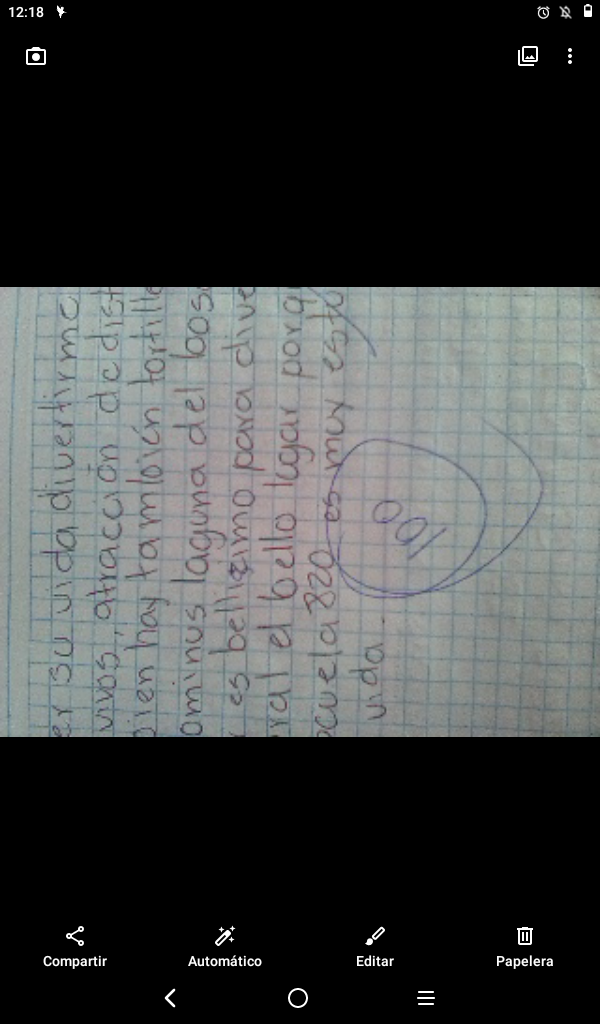 12:18
er su vida divertirme
vivos, atracción de dist
bien hay también tortille
ominus laguna del bosq
es bellisimo para dive
ral el bello lugar porq
cuela 820 es muy estu
vida.
100
Compartir
Automático
Editar
Papelera